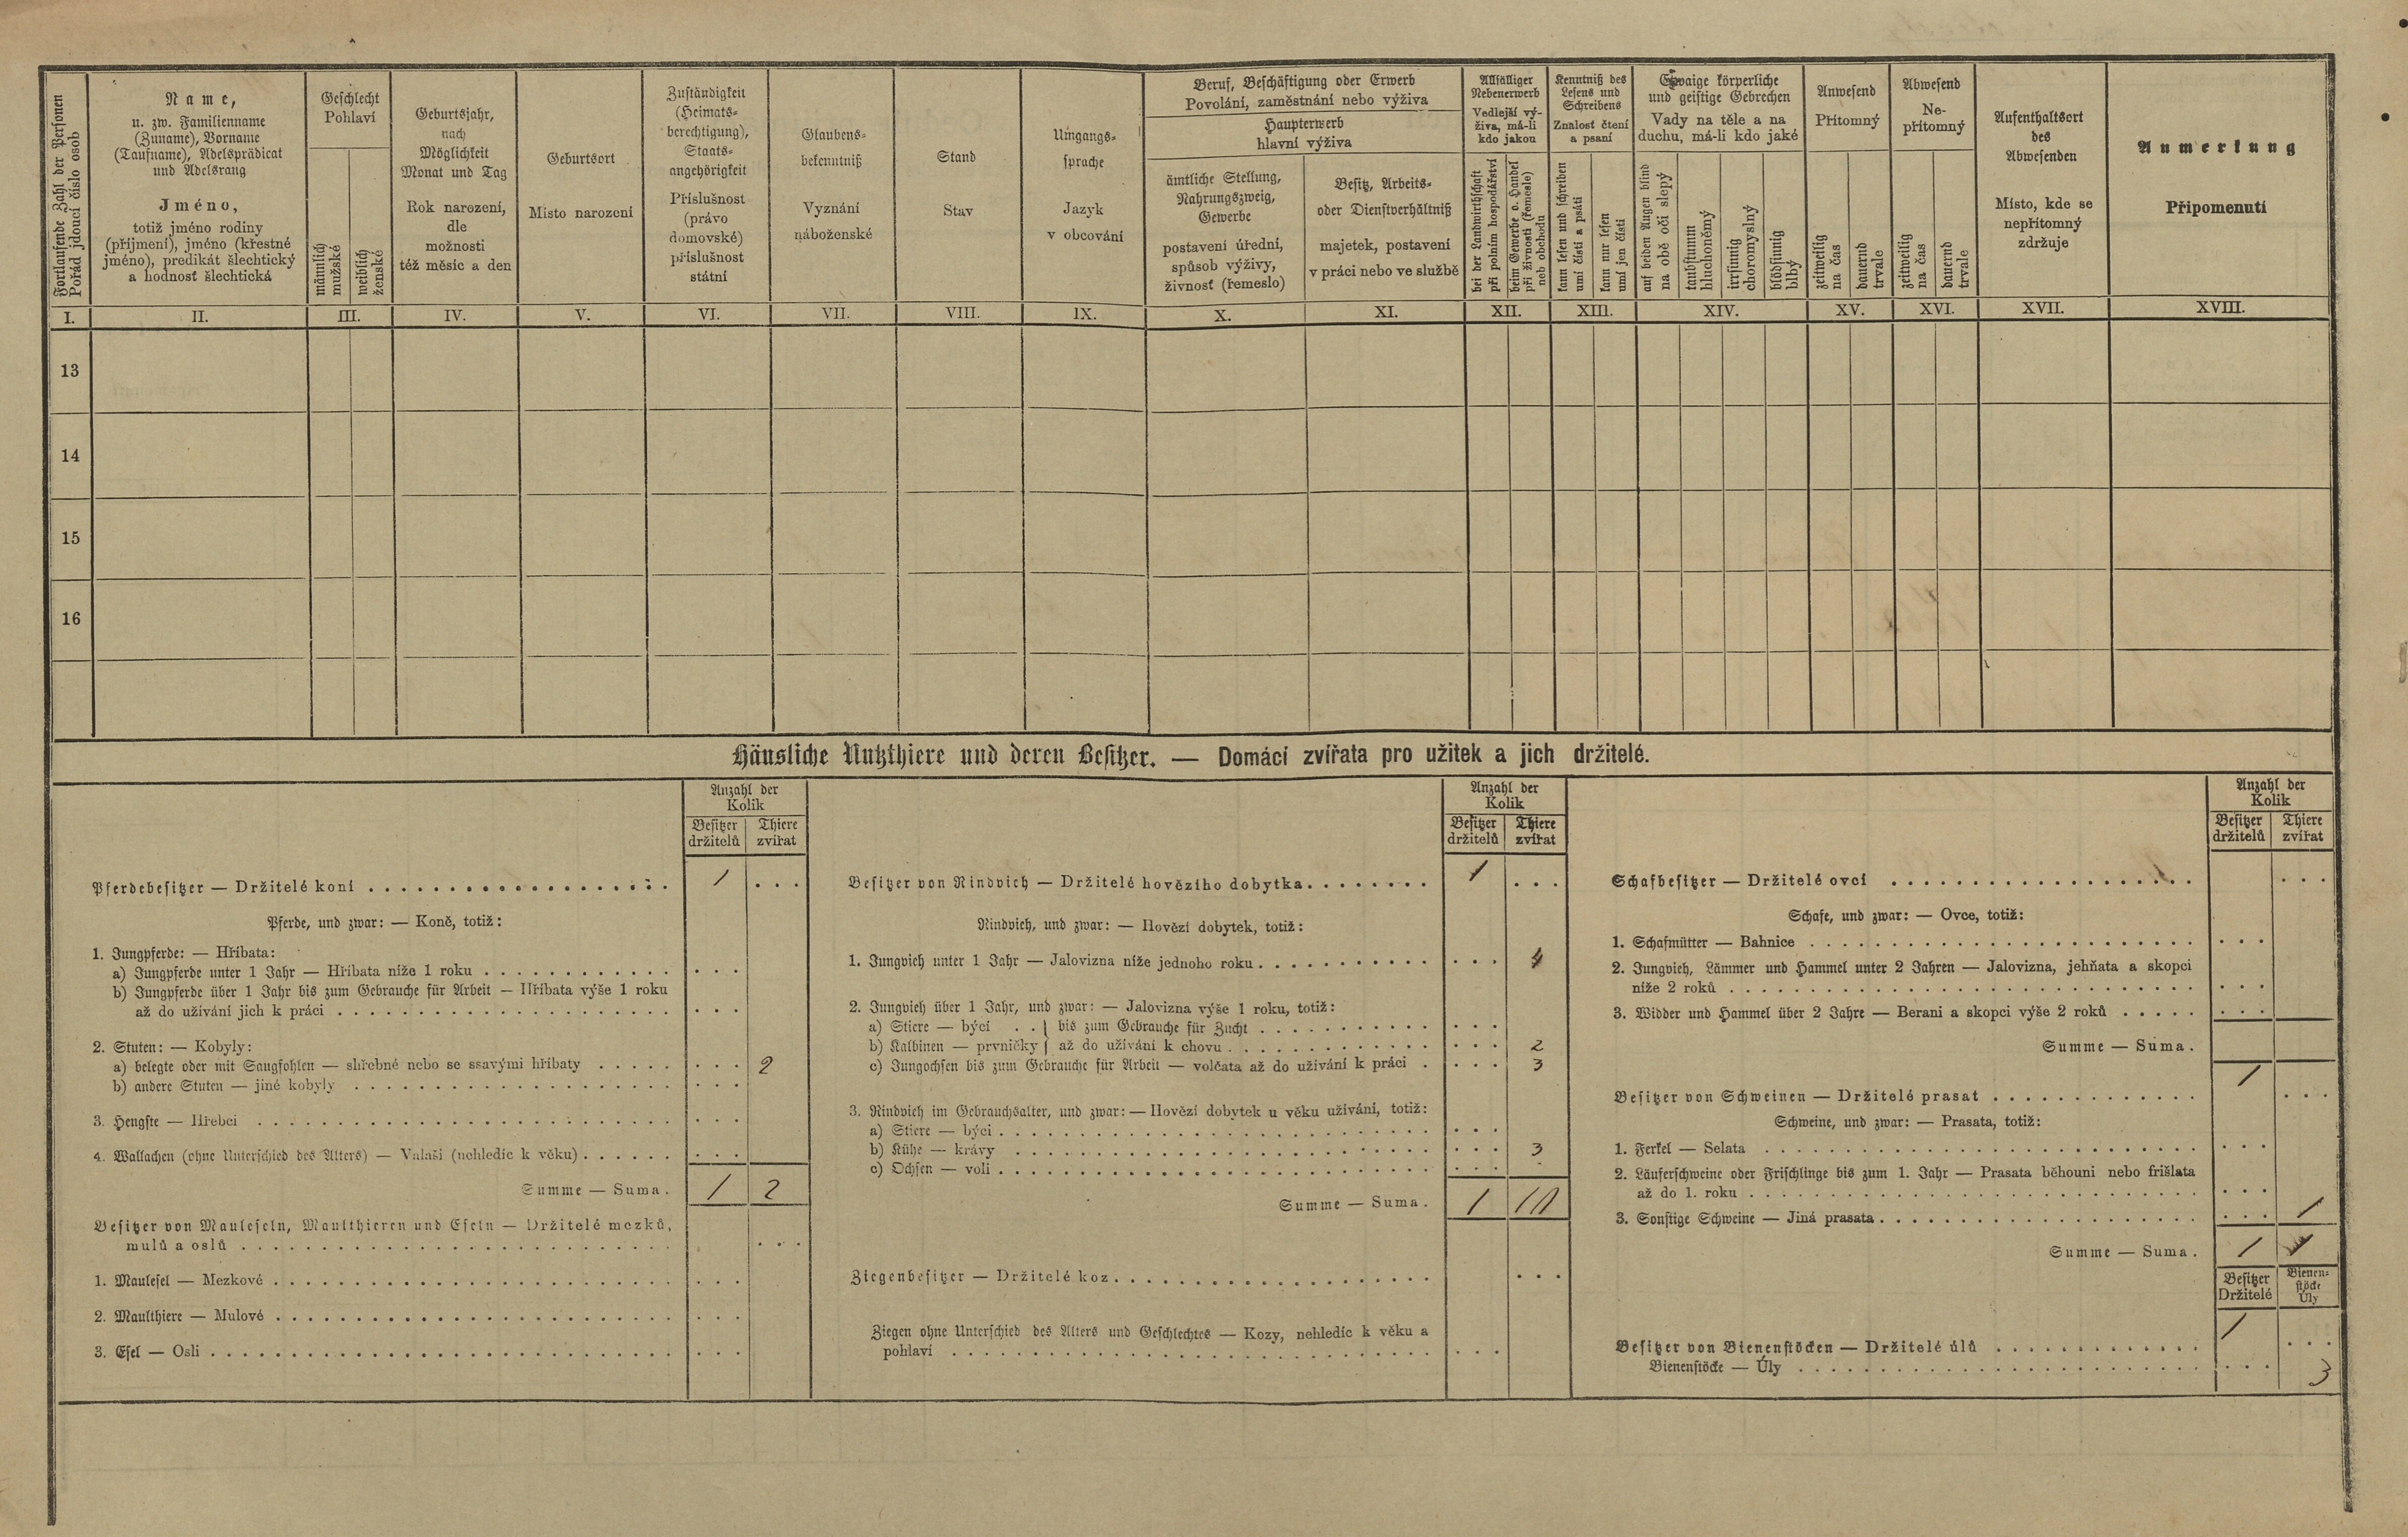 Fortlaufende Zahl der Personen
Pořád jdoucí číslo osob
Name,
u. zw. Familienname
(Zuname), Vorname
(Taufname), Adelsprädicat
und Adelsrang
Jméno,
totiž jméno rodiny
(příjmení), jméno (křestné
jméno), predikát šlechtický
a hodnosť šlechtická
Geschlecht
Pohlaví
männlich
mužské
weiblich
ženské
Geburtsjahr,
nach
Möglichkeit
Monat und Tag
Rok narození,
dle
možnosti
též měsíc a den
Geburtsort
Místo narození
Zuständigkeit
(Heimats-
berechtigung),
Staats-
angehörigkeit
Příslušnost
(právo
domovské)
příslušnost
státní
Glaubens-
bekenntniß
Vyznání
náboženské
Stand
Stav
Umgangs-
sprache
Jazyk
v obcování
Beruf, Beschäftigung oder Erwerb
Povolání, zaměstnání nebo výživa
Haupterwerb
hlavní výživa
ämtliche Stellung,
Nahrungszweig,
Gewerbe
postavení úřední,
spůsob výživy,
živnosť (řemeslo)
Besitz, Arbeits-
oder Dienstverhältniß
majetek, postavení
v práci nebo ve službě
Allfälliger
Nebenerwerb
Vedlejší vý-
živa, má-li
kdo jakou
bei der Landwirthschaft
při polním hospodářství
beim Gewerbe o. Handel
při živnosti (řemesle)
neb obchodu
Kenntniß des
Lesens und
Schreibens
Znalosť čtení
a psaní
kann lesen und schreiben
umí čísti a psáti
kann nur lesen
umí jen čísti
Etwaige körperliche
und geistige Gebrechen
Vady na těle a na
duchu, má-li kdo jaké
auf beiden Augen blind
na obě oči slepý
taubstumm
hluchoněmý
irrsinnig
choromyslný
blödsinnig
blbý
Anwesend
Přítomný
zeitweilig
na čas
dauernd
trvale
Abwesend
Ne-
přítomný
zeitweilig
na čas
dauernd
trvale
Aufenthaltsort
des
Abwesenden
Místo, kde se
nepřítomný
zdržuje
Anmerkung
Připomenutí
I. II. III. IV. V. VI. VII. VIII. IX. X. XI. XII. XIII. XIV. XV. XVI. XVII. XVIII.
13
14
15
16
Häusliche Nutzthiere und deren Besitzer. — Domácí zvířata pro užitek a jich držitelé.
Anzahl der
Kolik
Besitzer Thiere
držitelů zvířat
Pferdebesitzer — Držitelé koní . . . 1 . . .
Pferde, und zwar: — Koně, totiž:
1. Jungpferde: — Hříbata:
a) Jungpferde unter 1 Jahr — Hříbata níže 1 roku . . .
b) Jungpferde über 1 Jahr bis zum Gebrauche für Arbeit — Hříbata výše 1 roku
až do užívání jich k práci . . .
2. Stuten: — Kobyly:
a) belegte oder mit Saugfohlen — shřebné nebo se ssavými hříbaty . . . 2
b) andere Stuten — jiné kobyly . . .
3. Hengste — Hřebci . . .
4. Wallachen (ohne Unterschied des Alters) — Valaši (nehledíc k věku) . . .
Summe — Suma. 1 2
Besitzer von Mauleseln, Maulthieren und Eseln — Držitelé mezků,
mulů a oslů . . .
1. Maulesel — Mezkové . . .
2. Maulthiere — Mulové . . .
3. Esel — Osli . . .
Anzahl der
Kolik
Besitzer Thiere
držitelů zvířat
Besitzer von Rindvieh — Držitelé hovězího dobytka . . . 1 . . .
Rindvieh, und zwar: — Hovězí dobytek, totiž:
1. Jungvieh unter 1 Jahr — Jalovizna níže jednoho roku . . .
2. Jungvieh über 1 Jahr, und zwar: — Jalovizna výše 1 roku, totiž:
a) Stiere — býci . . } bis zum Gebrauche für Zucht . . .
b) Kalbinen — prvničky } až do užívání k chovu . . . 2
c) Jungochsen bis zum Gebrauche für Arbeit — volčata až do užívání k práci . . . 3
3. Rindvieh im Gebrauchsalter, und zwar: — Hovězí dobytek u věku užívání, totiž:
a) Stiere — býci . . .
b) Kühe — krávy . . . 3
c) Ochsen — voli . . .
Summe — Suma. 1
Ziegenbesitzer — Držitelé koz . . .
Ziegen ohne Unterschied des Alters und Geschlechtes — Kozy, nehledíc k věku a
pohlaví . . .
Anzahl der
Kolik
Besitzer Thiere
držitelů zvířat
Schafbesitzer — Držitelé ovcí . . .
Schafe, und zwar: — Ovce, totiž:
1. Schafmütter — Bahnice . . .
2. Jungvieh, Lämmer und Hammel unter 2 Jahren — Jalovizna, jehňata a skopci
níže 2 roků . . .
3. Widder und Hammel über 2 Jahre — Berani a skopci výše 2 roků . . .
Summe — Suma.
Besitzer von Schweinen — Držitelé prasat . . . 1 . . .
Schweine, und zwar: — Prasata, totiž:
1. Ferkel — Selata . . .
2. Läuferschweine oder Frischlinge bis zum 1. Jahr — Prasata běhouni nebo frišlata
až do 1. roku . . .
3. Sonstige Schweine — Jiná prasata . . . 1
Summe — Suma. 1
Besitzer Bienen-
Držitelé stöcke
Úly
Besitzer von Bienenstöcken — Držitelé úlů . . . 1 . . .
Bienenstöcke — Úly . . . 3